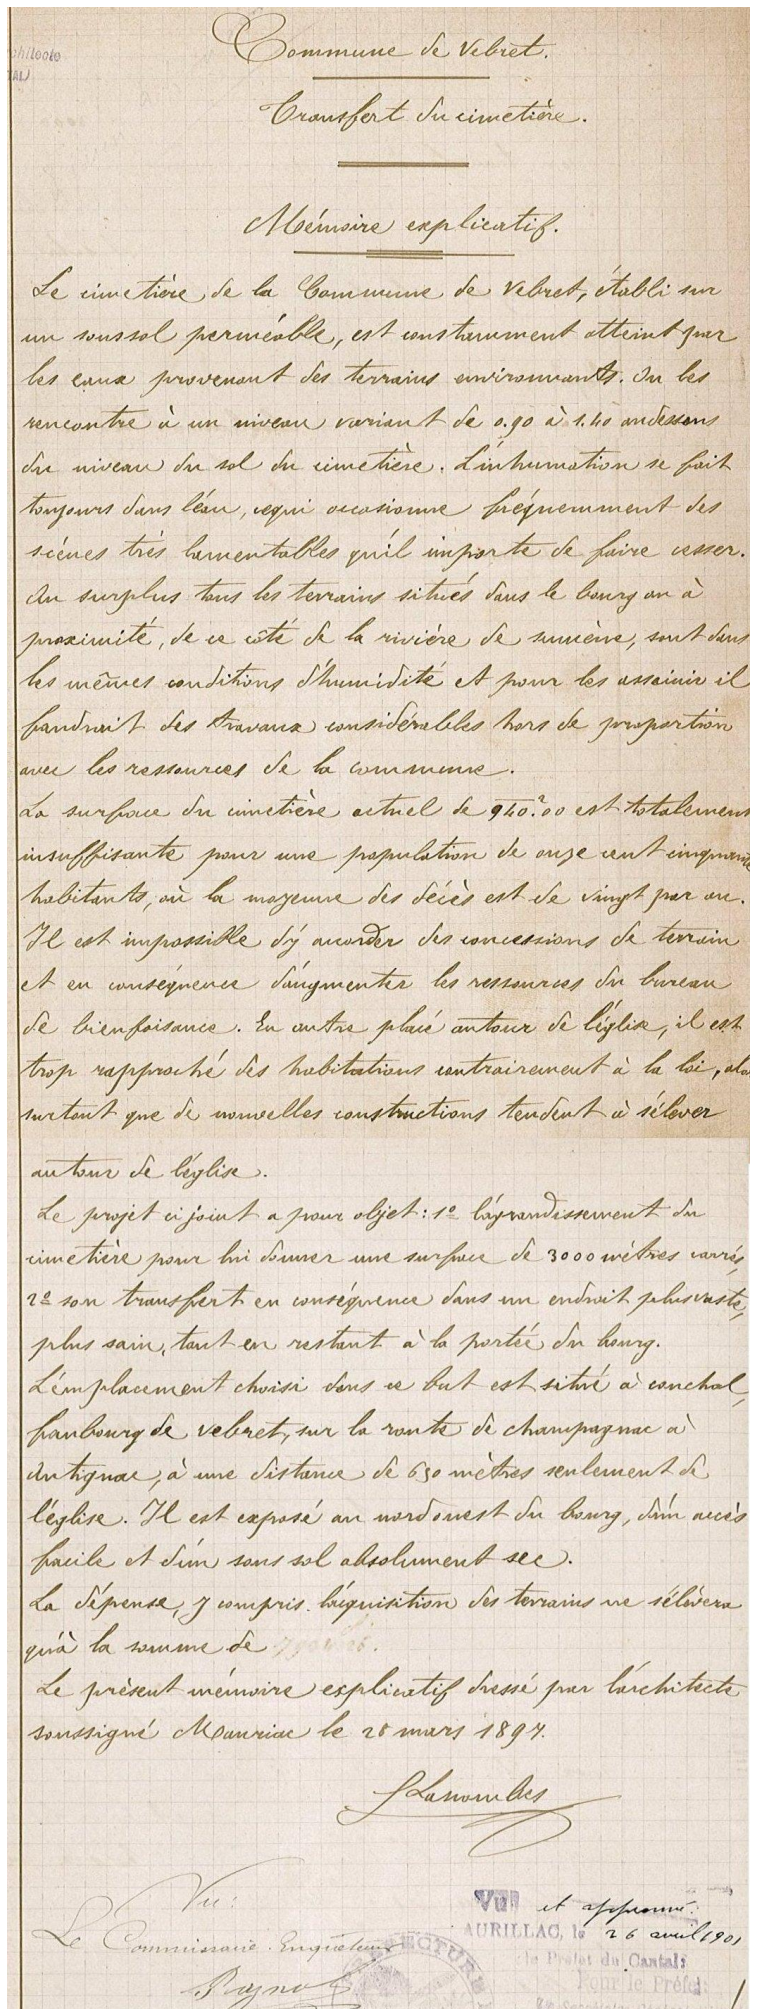 Commune de Vebret.
Transfert du cimetière.
Mémoire explicatif.
Le cimetière de la Commune de Vebret, établi sur
un soussol perméable, est constamment atteint par
les eaux provenant des terrains environnants. On les
rencontre à un niveau variant de 0.90 à 1.40 audessous
du niveau du sol du cimetière. L'inhumation se fait
toujours dans l'eau, cequi occasionne fréquemment des
scènes très lamentables qu'il importe de faire cesser.
Au surplus tous les terrains situés dans le bourg ou à
proximité, de ce côté de la rivière de sumène, sont dans
les mêmes conditions d'humidité et pour les assainir il
faudrait des travaux considérables hors de proportion
avec les ressources de la commune.
La surface du cimetière actuel de 940.²00 est totalement
insuffisante pour une population de onze cent cinquante
habitants, où la moyenne des décès est de vingt par an.
Il est impossible d'y accorder des concessions de terrain
et en conséquence d'augmenter les ressources du bureau
de bienfaisance. En outre placé autour de l'église, il est
trop rapproché des habitations contrairement à la loi, alo
surtout que de nouvelles constructions tendent à s'élever
autour de l'église.
Le projet ci joint a pour objet: 1º l'agrandissement du
cimetière pour lui donner une surface de 3000 mètres carrés,
2º son transfert en conséquence dans un endroit plus vaste,
plus sain, tout en restant à la portée du bourg.
L'emplacement choisi dans ce but est situé à couchal,
faubourg de Vebret, sur la route de champagnac à
Antignac, à une distance de 650 mètres seulement de
l'église. Il est exposé au nord ouest du bourg, d'un accès
facile et d'un sous sol absolument sec.
La dépense, y compris l'acquisition des terrains ne s'élèvera
qu'à la somme de
Le présent mémoire explicatif dressé par l'architecte
soussigné Mauriac le 28 mars 1897.
Vu:
Le Commissaire Enquêteur
Vu et approuvé:
AURILLAC, le 26 avril 1901
le Préfet du Cantal:
Pour le Préfet:
PRÉFECTURE